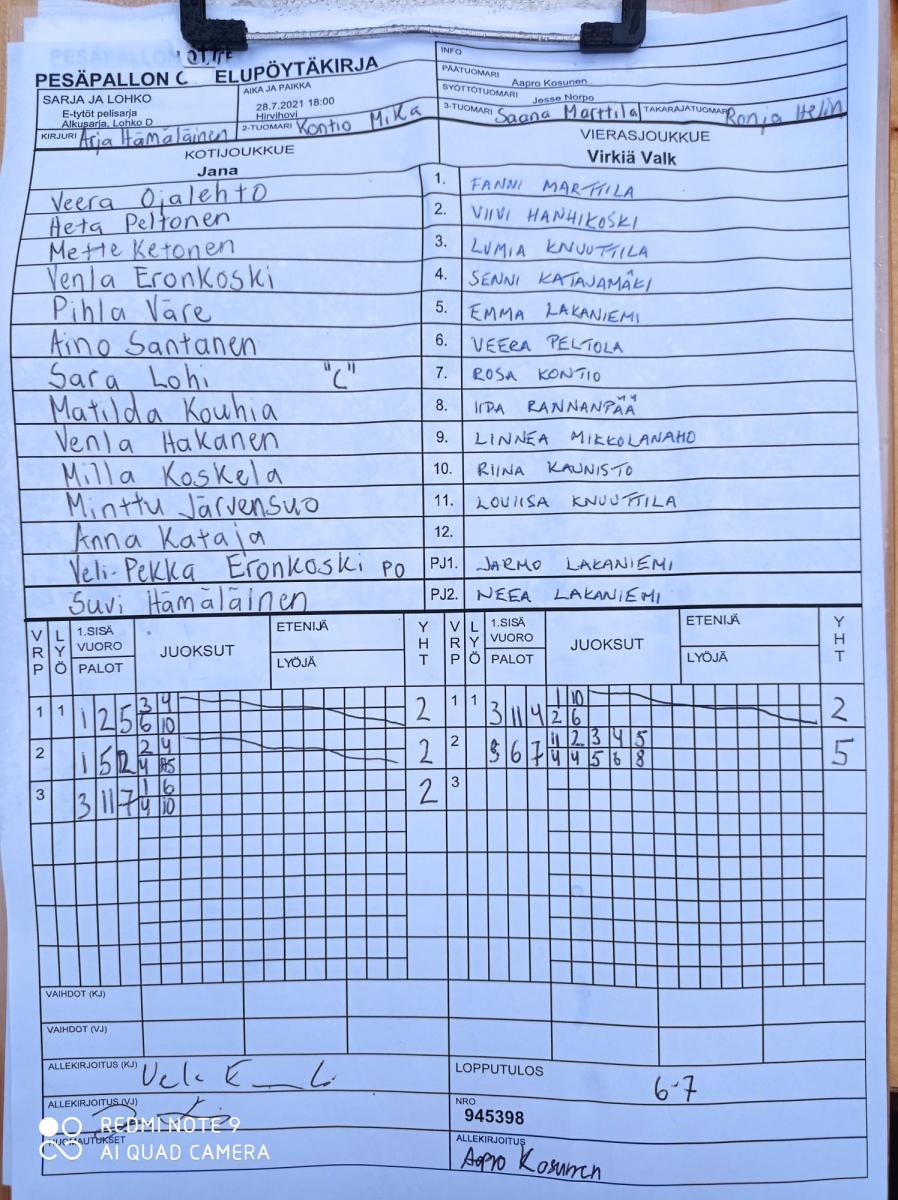 PESÄPALLON OTTELUPÖYTÄKIRJA
INFO
PÄÄTUOMARI Aapro Kosunen
SYÖTTÖTUOMARI Jesse Norpo
3-TUOMARI Saana Marttila TAKARAJATUOMARI Ronja Helin
SARJA JA LOHKO
E-tytöt pelisarja
Alkusarja, Lohko D
AIKA JA PAIKKA
28.7.2021 18:00
Hirvihovi
KIRJURI Arja Hämäläinen
2-TUOMARI Kontio Mika
KOTIJOUKKUE
Jana
VIERASJOUKKUE
Virkiä Valk
Veera Ojalehto 1. FANNI MARTTILA
Heta Peltonen 2. VIIVI HANHIKOSKI
Mette Ketonen 3. LUMIA KNUUTTILA
Venla Eronkoski 4. SENNI KATAJAMÄKI
Pihla Väre 5. EMMA LAKANIEMI
Aino Santanen 6. VEERA PELTOLA
Sara Lohi "C" 7. ROSA KONTIO
Matilda Kouhia 8. IIDA RANNANPÄÄ
Venla Hakanen 9. LINNEA MIKKOLANAHO
Milla Koskela 10. RIINA KAUNISTO
Minttu Järvensuo 11. LOVIISA KNUUTTILA
Anna Kataja 12.
Veli-Pekka Eronkoski PO PJ1. JARMO LAKANIEMI
Suvi Hämäläinen PJ2. NEEA LAKANIEMI
VRP LYÖ 1.SISÄ VUORO PALOT JUOKSUT ETENIJÄ LYÖJÄ YHT VRP LYÖ 1.SISÄ VUORO PALOT JUOKSUT ETENIJÄ LYÖJÄ YHT
1 1 1 2 5 3 4 2 1 1 3 11 4 1 10 2
6 10 2 6
2 1 5 2 4 2 2 6 7 11 2 3 4 5 5
4 4 4 5 6 8
3 3 11 7 1 6 2 3
4 10
VAIHDOT (KJ)
VAIHDOT (VJ)
ALLEKIRJOITUS (KJ)
LOPPUTULOS 6-7
ALLEKIRJOITUS (VJ)
NRO
945398
HUOMAUTUKSET
ALLEKIRJOITUS
Aapro Kosunen
REDMI NOTE 9
AI QUAD CAMERA